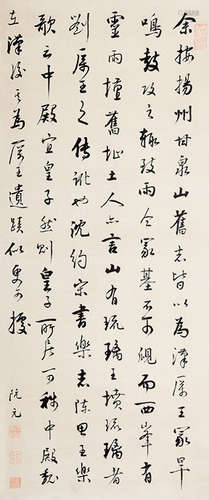 余按揚州甘泉山舊志皆以為漢厲王冢旱
鳴鼓攻之輒致雨今冢基不可觀而西峯有
靈雨壇舊址土人亦言山有琉璃王墳琉璃者
劉厲王之傳訛也沈約宋書樂志陳思王樂
歌云中殿宜皇子然則皇子所居可稱中殿較
立漢後其為厲王遺蹟似更可據
阮元